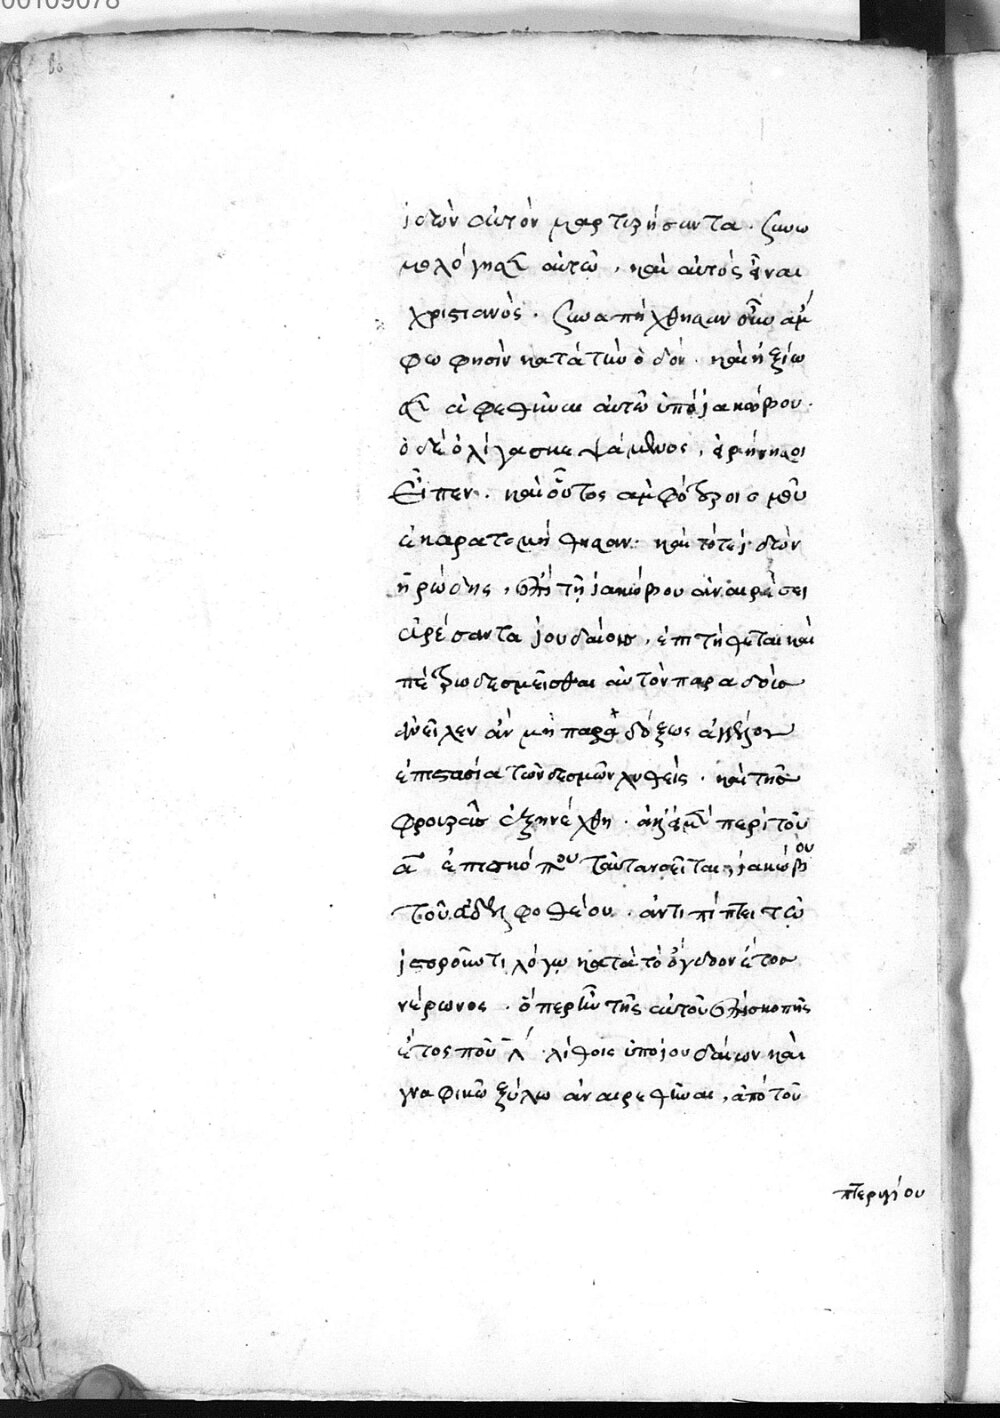 00109078
86
ἰδὼν αὐτὸν μαρτυρήσαντα. συνω
μολόγησεν αὐτῷ, καὶ αὐτὸς εἶναι
χριστιανός. συναπήχθησαν οὖν ἄμ
φω φησὶν κατὰ τὴν ὁδόν. καὶ ἠξίω
σεν ἀφεθῆναι αὐτῶ ὑπὸ ἰακώβου.
ὁ δὲ ὀλίγα σκεψάμενος, εἰρήνη σοι
εἶπεν. καὶ οὕτως ἀμφότεροι ὁμοῦ
ἐκαρατομήθησαν. καὶ τότε ἰδὼν
ἡρώδης, ἐπὶ τῇ ἰακώβου ἀναιρέσει
ἀρέσαντα ἰουδαίοις, ἐπιτίθεται καὶ
πέτρω δεσμεῖσθαι αὐτὸν παραδοὺς
ἀνεῖλεν ἂν μὴ παραδόξως ἀγγέλου
ἐπιστασία τῶν δεσμῶν λυθείς. καὶ τῆς
φρουρᾶς ἐξηνέχθη. ἀλλὰ μὴν περὶ τοῦ
α ἐπισκόπου ταῦτα κεῖται, ἰακώβου
τοῦ ἀδελφοθέου. ἀντιπίπτει τῷ
ἱστοροῦντι λόγω κατὰ τὸ ὄγδοον ἔτος
νέρωνος. ὅπερ ἦν τῆς αὐτοῦ ἐπισκοπῆς
ἔτος που λ. λίθοις ὑπὸ ἰουδαίων καὶ
γναφικῶ ξύλω ἀναιρεθῆναι, ἀπὸ τοῦ
πτερυγίου